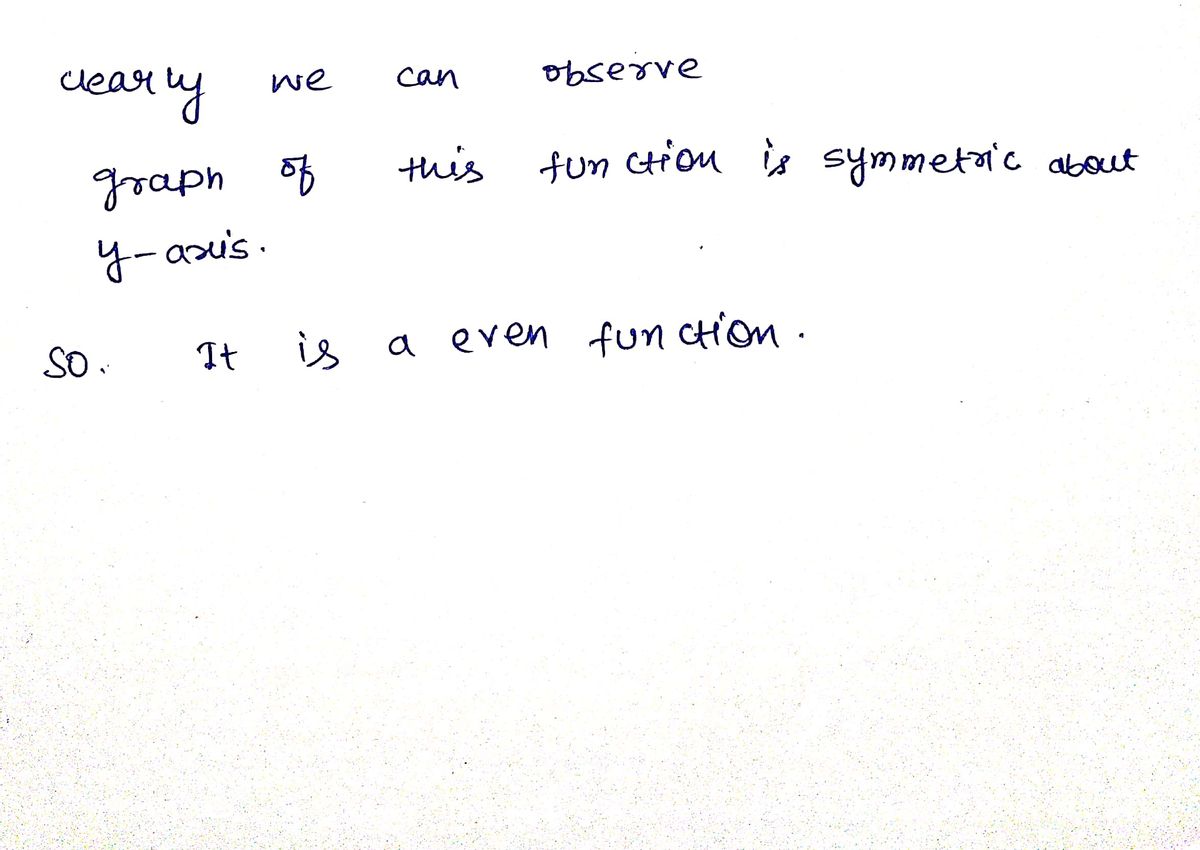 clearly we can observe
graph of this function is symmetric about
y-axis.
so. It is a even function.